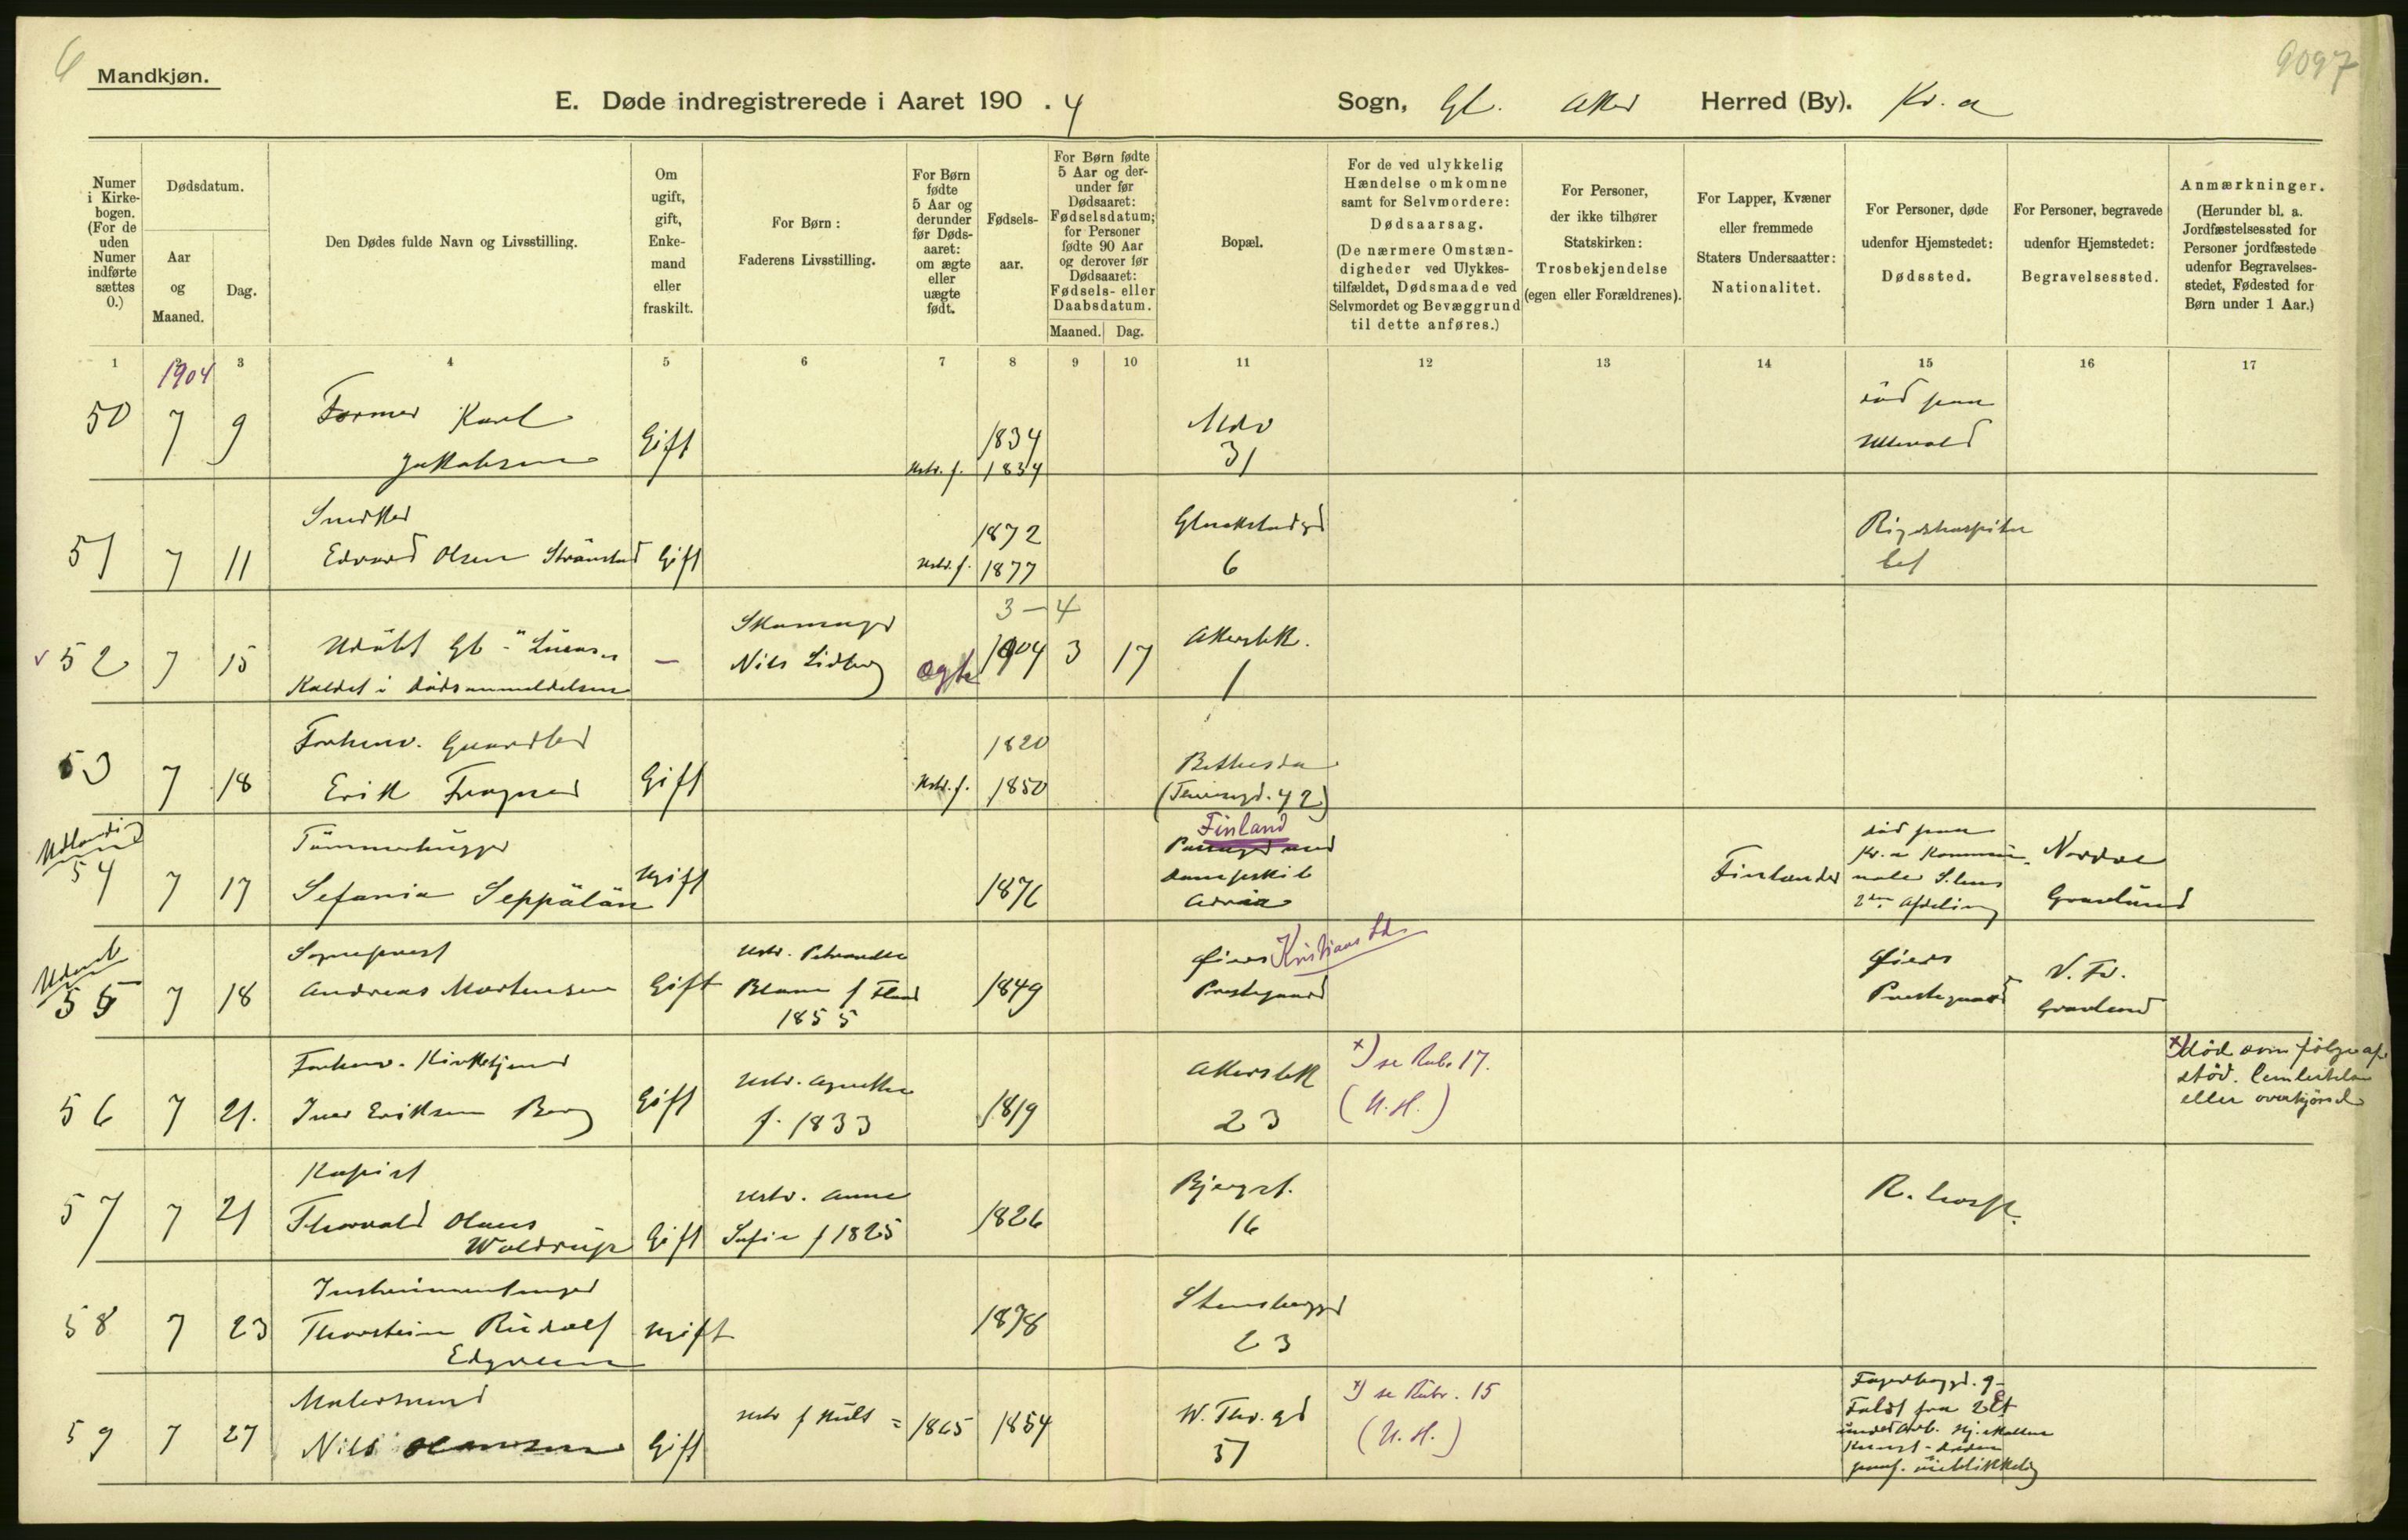 6
9097
Mandkjøn.
E. Døde indregistrerede i Aaret 190 . 4 Sogn, Gl. Aker Herred (By). Kr. a
Numer i Kirkebogen. (For de uden Numer indførte sættes 0.)
Dødsdatum.
Aar og Maaned.
Dag.
Den Dødes fulde Navn og Livsstilling.
Om ugift, gift, Enkemand eller fraskilt.
For Børn: Faderens Livsstilling.
For Børn fødte 5 Aar og derunder før Dødsaaret: om ægte eller uægte født.
Fødselsaar.
For Børn fødte 5 Aar og derunder før Dødsaaret: Fødselsdatum; for Personer fødte 90 Aar og derover før Dødsaaret: Fødsels- eller Daabsdatum.
Maaned. Dag.
Bopæl.
For de ved ulykkelig Hændelse omkomne samt for Selvmordere: Dødsaarsag. (De nærmere Omstændigheder ved Ulykkestilfældet, Dødsmaade ved Selvmordet og Bevæggrund til dette anføres.)
For Personer, der ikke tilhører Statskirken: Trosbekjendelse (egen eller Forældrenes).
For Lapper, Kvæner eller fremmede Staters Undersaatter: Nationalitet.
For Personer, døde udenfor Hjemstedet: Dødssted.
For Personer, begravede udenfor Hjemstedet: Begravelsessted.
Anmærkninger. (Herunder bl. a. Jordfæstelsessted for Personer jordfæstede udenfor Begravelsesstedet, Fødested for Børn under 1 Aar.)
1 2 3 4 5 6 7 8 9 10 11 12 13 14 15 16 17
1904
50 7 9 Former Karl Jakobsen Gift Hstr. f. 1834 1834 31 død paa Ullevaal
51 7 11 Snedker Edvard Olsen Strømstad Gift Hstr. f. 1872 1877 Glückstadgd 6 Rigshospitalet
52 7 15 Udøbt Gb - Kaldet i dødsanmeldelsen — Skomager Nils Lidberg ægte 3 - 4 1904 3 17 Akersbk. 1
53 7 18 Forhenv. Gaardbr Erik Gift Hstr. f. 1820 1850 Bethesda 42)
Udlændig
54 7 17 Tømmerhugger Sefania Seppälän Ugift 1876 Finland Passager med dampskib Finlænder død paa Kr. a Kommunale S.hus 2den Afdeling Nordre Gravlund
Udenb
55 7 18 Sogneprest Andreas Mortensen Gift Hstr. f 1855 1849 Øiers Prestegaard Kristians Øiers Prestegaard V. Fr. Gravlund
56 7 21. Forhenv. Kirketjener Iver Eriksen Berg Gift Hstr. Agnethe f. 1833 1819 Akersbk 23 x) se Rub. 17. (U. H.) x) død som følge af stød. eller overkjørsel
57 7 21 Kopist Thorvald Olaus Woldrup Gift Hstr. Anne Sofie f 1825 1826 Bjergst. 16 R. hosp.
58 7 23 Instrumentmager Thorstein Rudolf Ugift 1878 Stensberggd 23
59 7 27 Malersvend Nils Gift Hstr f 1865 1854 W. Thr. gd 51 x) se Rubr. 15 (U. H.) Fagerborggd. 9 - Faldt fra 2 Et under Arb.